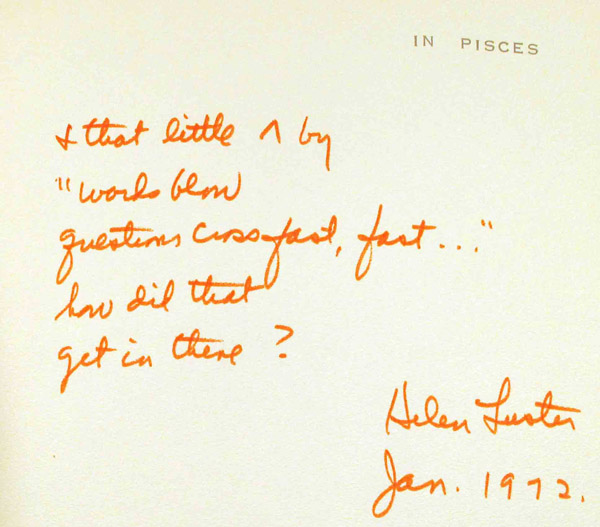 IN PISCES
& that little ^ by
"words blow
questions cross fast, fast..."
how did that
get in there ?
Helen Luster
Jan. 1972.